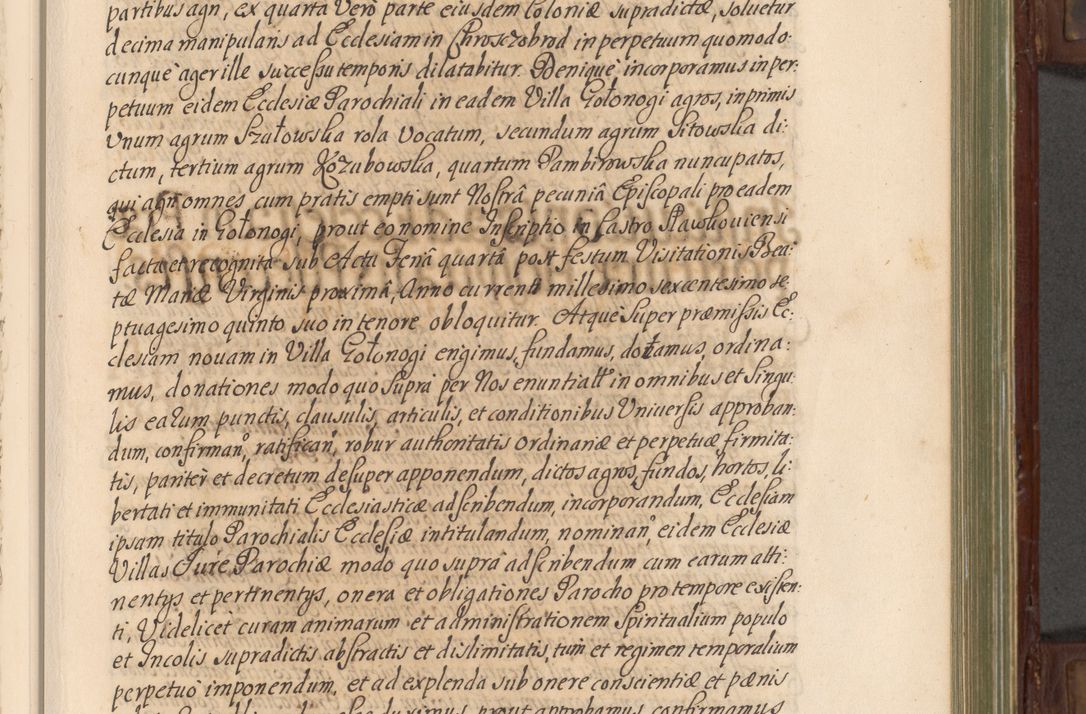 partibus agri, ex quarta Verò parte eiusdem Coloniæ supradictæ, solvetur
decima manipularis ad Ecclesiam in Chroszobrod in perpetuum quomodo-
cunque ager ille successu temporis dilatabitur. Denique incorporamus in per-
petuum eidem Ecclesiæ Parochiali in eadem Villa Gołonogi agros, in primis
Unum agrum Szałowska rola vocatum, secundum agrum Sitowska di-
ctum, tertium agrum Kozubowska, quartum Pambirowska nuncupatos,
qui agri omnes cum pratis empti sunt Nostrâ pecuniâ Episcopali pro eadem
Ecclesia in Gołonogi, prout eo nomine Inscriptio in Castro Slawkoviensi
facta et recognita sub Actu Feriâ quartâ post festum Visitationis Bea-
tæ Mariæ Virginis proximâ, Anno currenti millesimo sexcentesimo se-
ptuagesimo quinto suo in tenore obloquitur. Atque super præmissis Ec-
clesiam novam in Villa Gołonogi erigimus, fundamus, dotamus, ordina-
mus, donationes modo quo supra per Nos enuntiatt in omnibus et singu-
lis earum punctis, clausulis, articulis, et conditionibus Universis approban-
dum, confirman, ratifican, robur authoritatis ordinariæ et perpetuæ firmita-
tis, pariter et decretum desuper apponendum, dictos agros, fundos, hortos, li-
bertati et immunitati Ecclesiasticæ adscribendum, incorporandum, Ecclesiam
ipsam titulo Parochialis Ecclesiæ intitulandum, nominan, eidem Ecclesiæ
Villas Jure Parochiæ modo quo suprâ adscribendum cum earum atti-
nentys et pertinentys, onera et obligationes Parocho pro tempore existen-
ti, Videlicet curam animarum et administrationem Spiritualium populo
et Incolis supradictis abstractis et dislimitatis, tum et regimen temporalium
perpetuo imponendum, et ad explenda sub onere conscientiæ et pænis
duximus, prout approbamus confirmamus